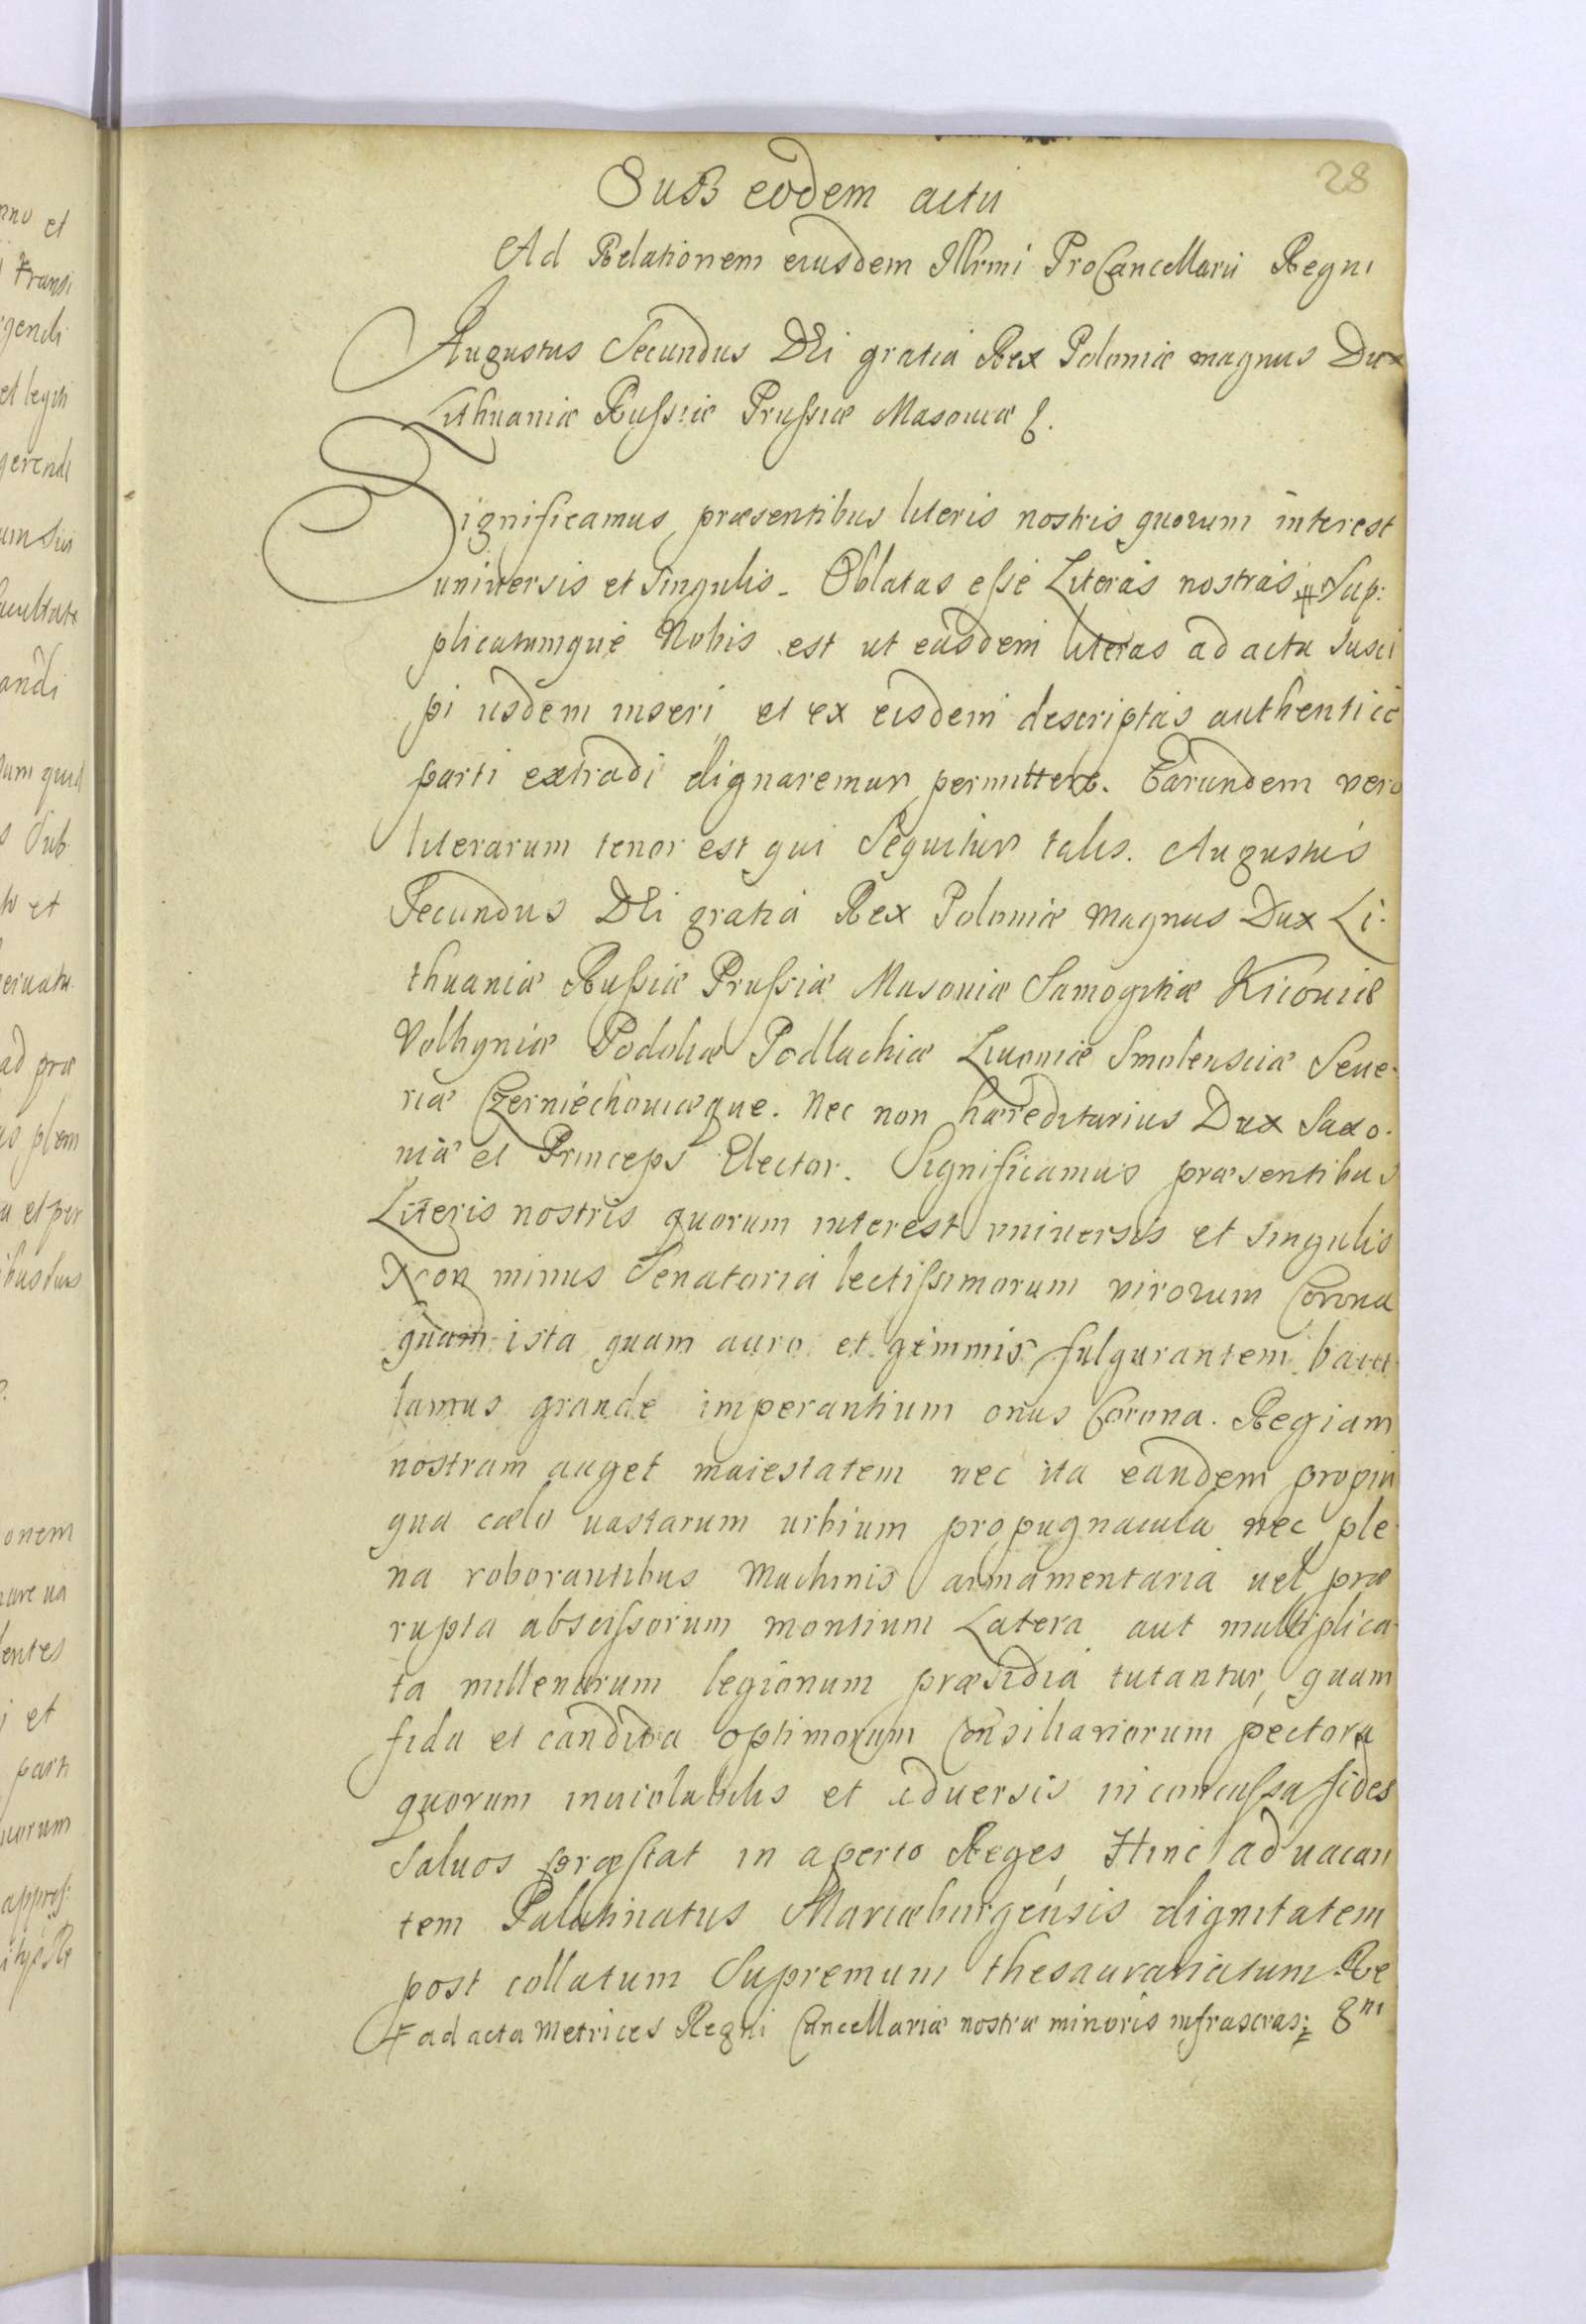 28
Sub eodem actu
Ad Relationem eiusdem Illrmi ProCancellarii Regni
Augustus Secundus DEi gratia Rex Poloniæ magnus Dux
Lithuaniæ Rußiæ Prußiæ Masouiæ
Significamus præsentibus literis nostris quorum interest
universis et singulis. Oblatas eße Literas nostras # Sup:
plicatumque Nobis est ut easdem literas ad acta susci
pi iisdem inseri et ex eisdem descriptas authentice
parti extradi dignaremur permittere. Earundem vero
literarum tenor est qui sequitur talis. Augustus
Secundus DEi gratia Rex Poloniæ magnus Dux Li-
thuaniæ Rußiæ Prußiæ Masouiæ Samogitiæ Kiiouiæ
Volhyniæ Podoliæ Podlachiæ Liuoniæ Smolensciæ Seue-
riæ Czerniechouiæque. Nec non hæreditarius Dux Saxo-
niæ et Princeps Elector. Significamus præsentibus
Literis nostris quorum interest vniuersis et singulis
Non minus Senatoria lectißimorum virorum Corona
quam ista quam auro et gemmis fulgurantem baiu
lamus grande imperantium onus Corona. Regiam
nostram auget maiestatem nec ita eandem propin
qua cælo uastarum urbium propugnacula nec ple
na roborantibus machinis armamentaria uel præ
rupta abscißorum montium Latera aut multiplica
ta millenarum legionum præsidia tutantur, quam
fida et candida optimorum Consiliariorum pectora
quorum inuiolabilis et aduersis inconcußa fides
saluos præstat in aperto Reges Hinc ad uacan
tem Palatinatus Mariæburgensis dignitatem
post collatum Supremum thesaurariatum Re
# ad acta metrices Regni Cancellariæ nostræ minoris infrascras: gni